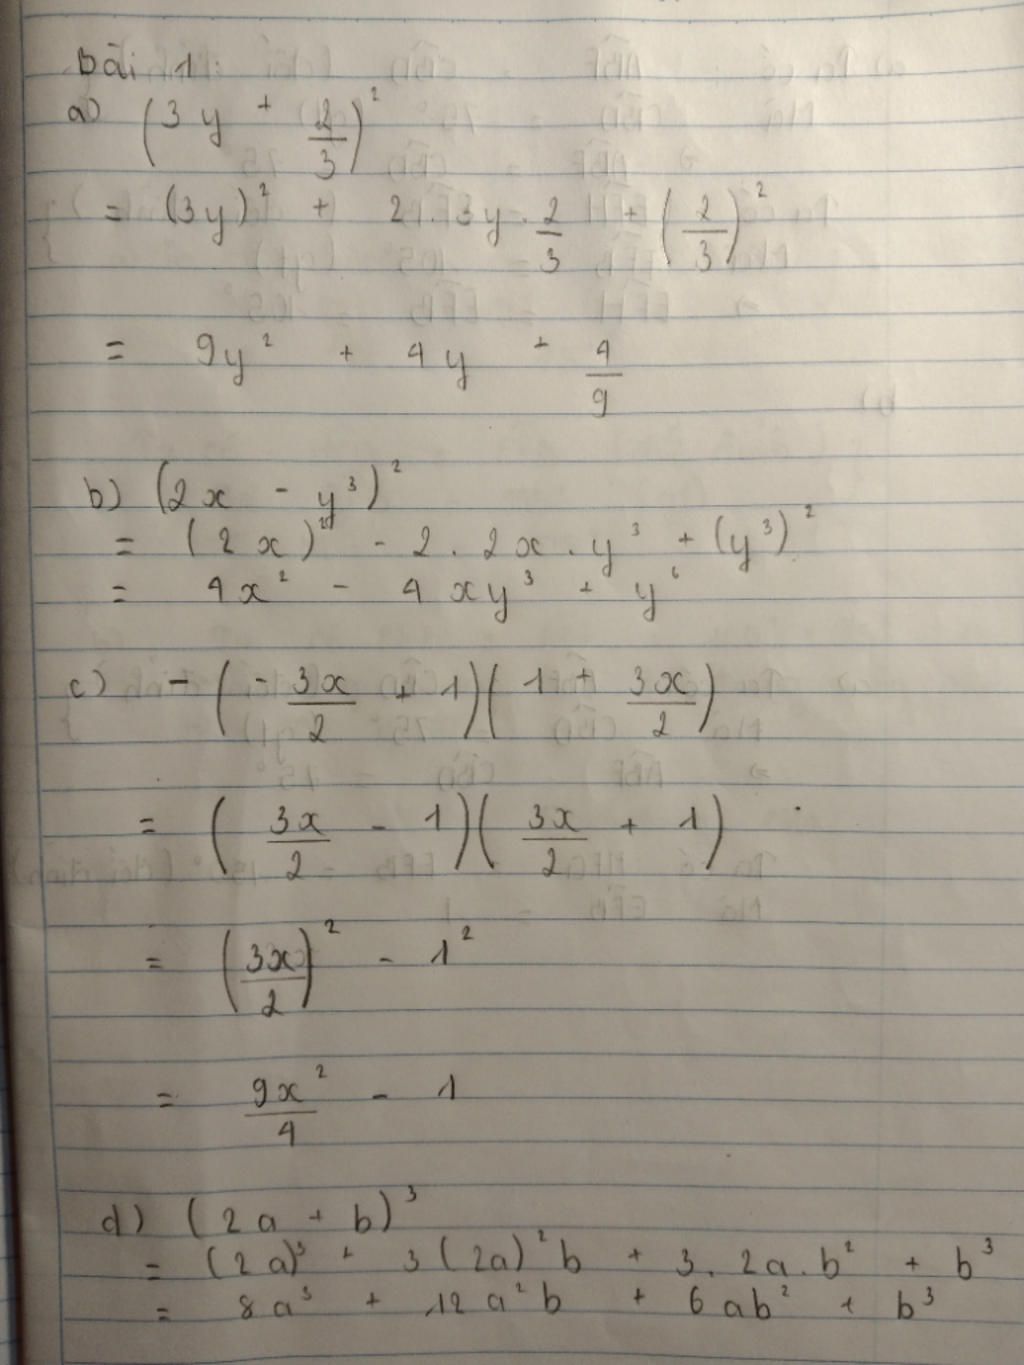 Bài 1:
a) (3y + 2/3)²
= (3y)² + 2.3y.2/3 + (2/3)²
= 9y² + 4y + 4/9
b) (2x - y³)²
= (2x)² - 2.2x.y³ + (y³)²
= 4x² - 4xy³ + y⁶
c) -(-3x/2 + 1)(1 + 3x/2)
= (3x/2 - 1)(3x/2 + 1)
= (3x/2)² - 1²
= 9x²/4 - 1
d) (2a + b)³
= (2a)³ + 3(2a)²b + 3.2a.b² + b³
= 8a³ + 12a²b + 6ab² + b³